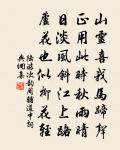 山雲喜我馬蹄聲
正用此時秋雨晴
日淡風斜江上路
蘆花也似柳花輕
陸游次韻周輔道中詞
典網集